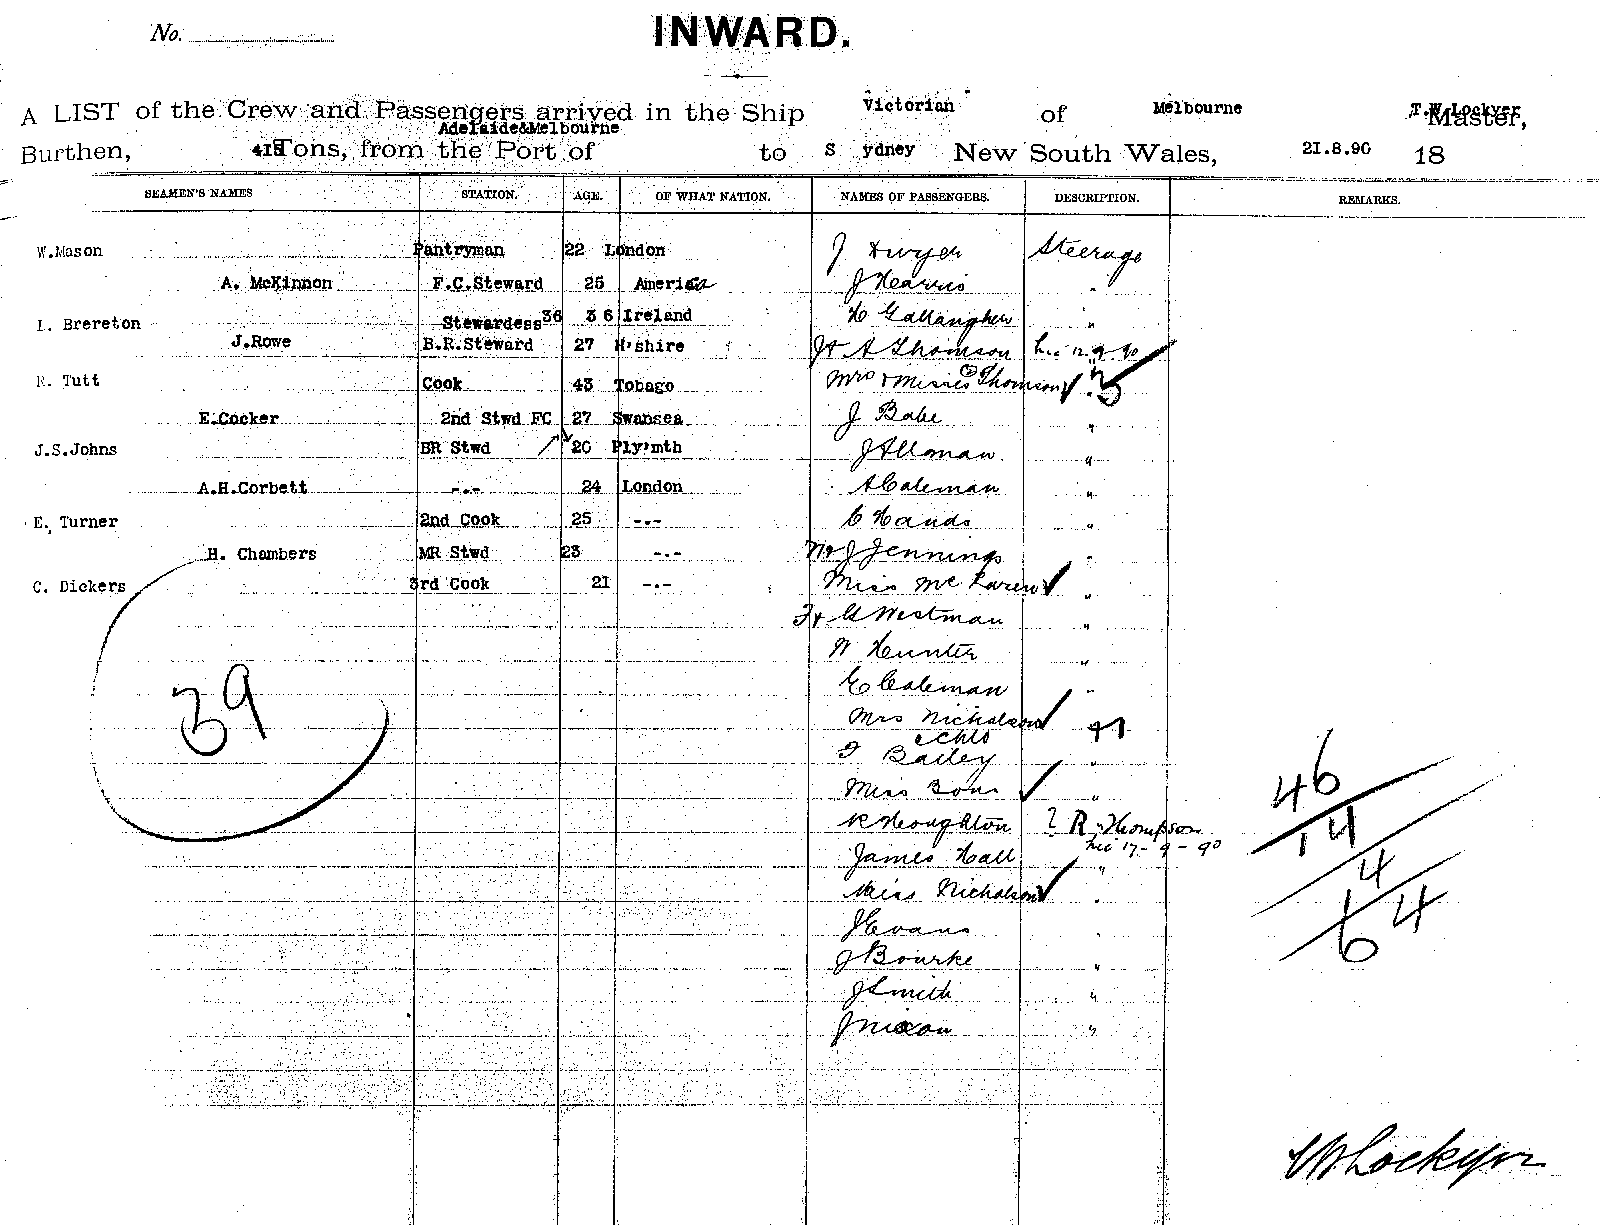 No.
INWARD.
A LIST of the Crew and Passengers arrived in the Ship Victorian of Melbourne T.W.Lockyer Master,
Burthen, Tons, from the Port of Adelaide&Melbourne to S ydney New South Wales, 21.8.90 18
SEAMEN'S NAMES STATION. AGE. OF WHAT NATION. NAMES OF PASSENGERS. DESCRIPTION. REMARKS.
W.Mason Pantryman 22 London J Dwyer Steerage
A. McKinnon F.C.Steward 25 America J Hearris "
I. Brereton Stewardess 36 36 Ireland H Gallangher "
J.Rowe B.R.Steward 27 H'shire J A Thomson 12.9.90
R. Tutt Cook 43 Tobago Mrs & Misses Thomson 3
E.Cocker 2nd Stwd FC 27 Swansea J Babe "
J.S.Johns BR Stwd 20 Ply'mth J Allman "
A.H.Corbett -.- 24 London A Coleman "
E. Turner 2nd Cook 25 -.- C Hands "
H. Chambers MR Stwd 23 -.- J Jennings "
C. Dickers 3rd Cook 21 -.- Miss Mc "
G Westman "
W Hunter "
E Coleman "
39 Mrs Nicholson
& chld
F Bailey "
46
Miss "
R Houghton ? R. Thompson
17-9-90
14
James Hall "
4
Miss Nicholson "
64
J Evans "
J Bourke "
J Smith "
J Nixon "
Lockyer